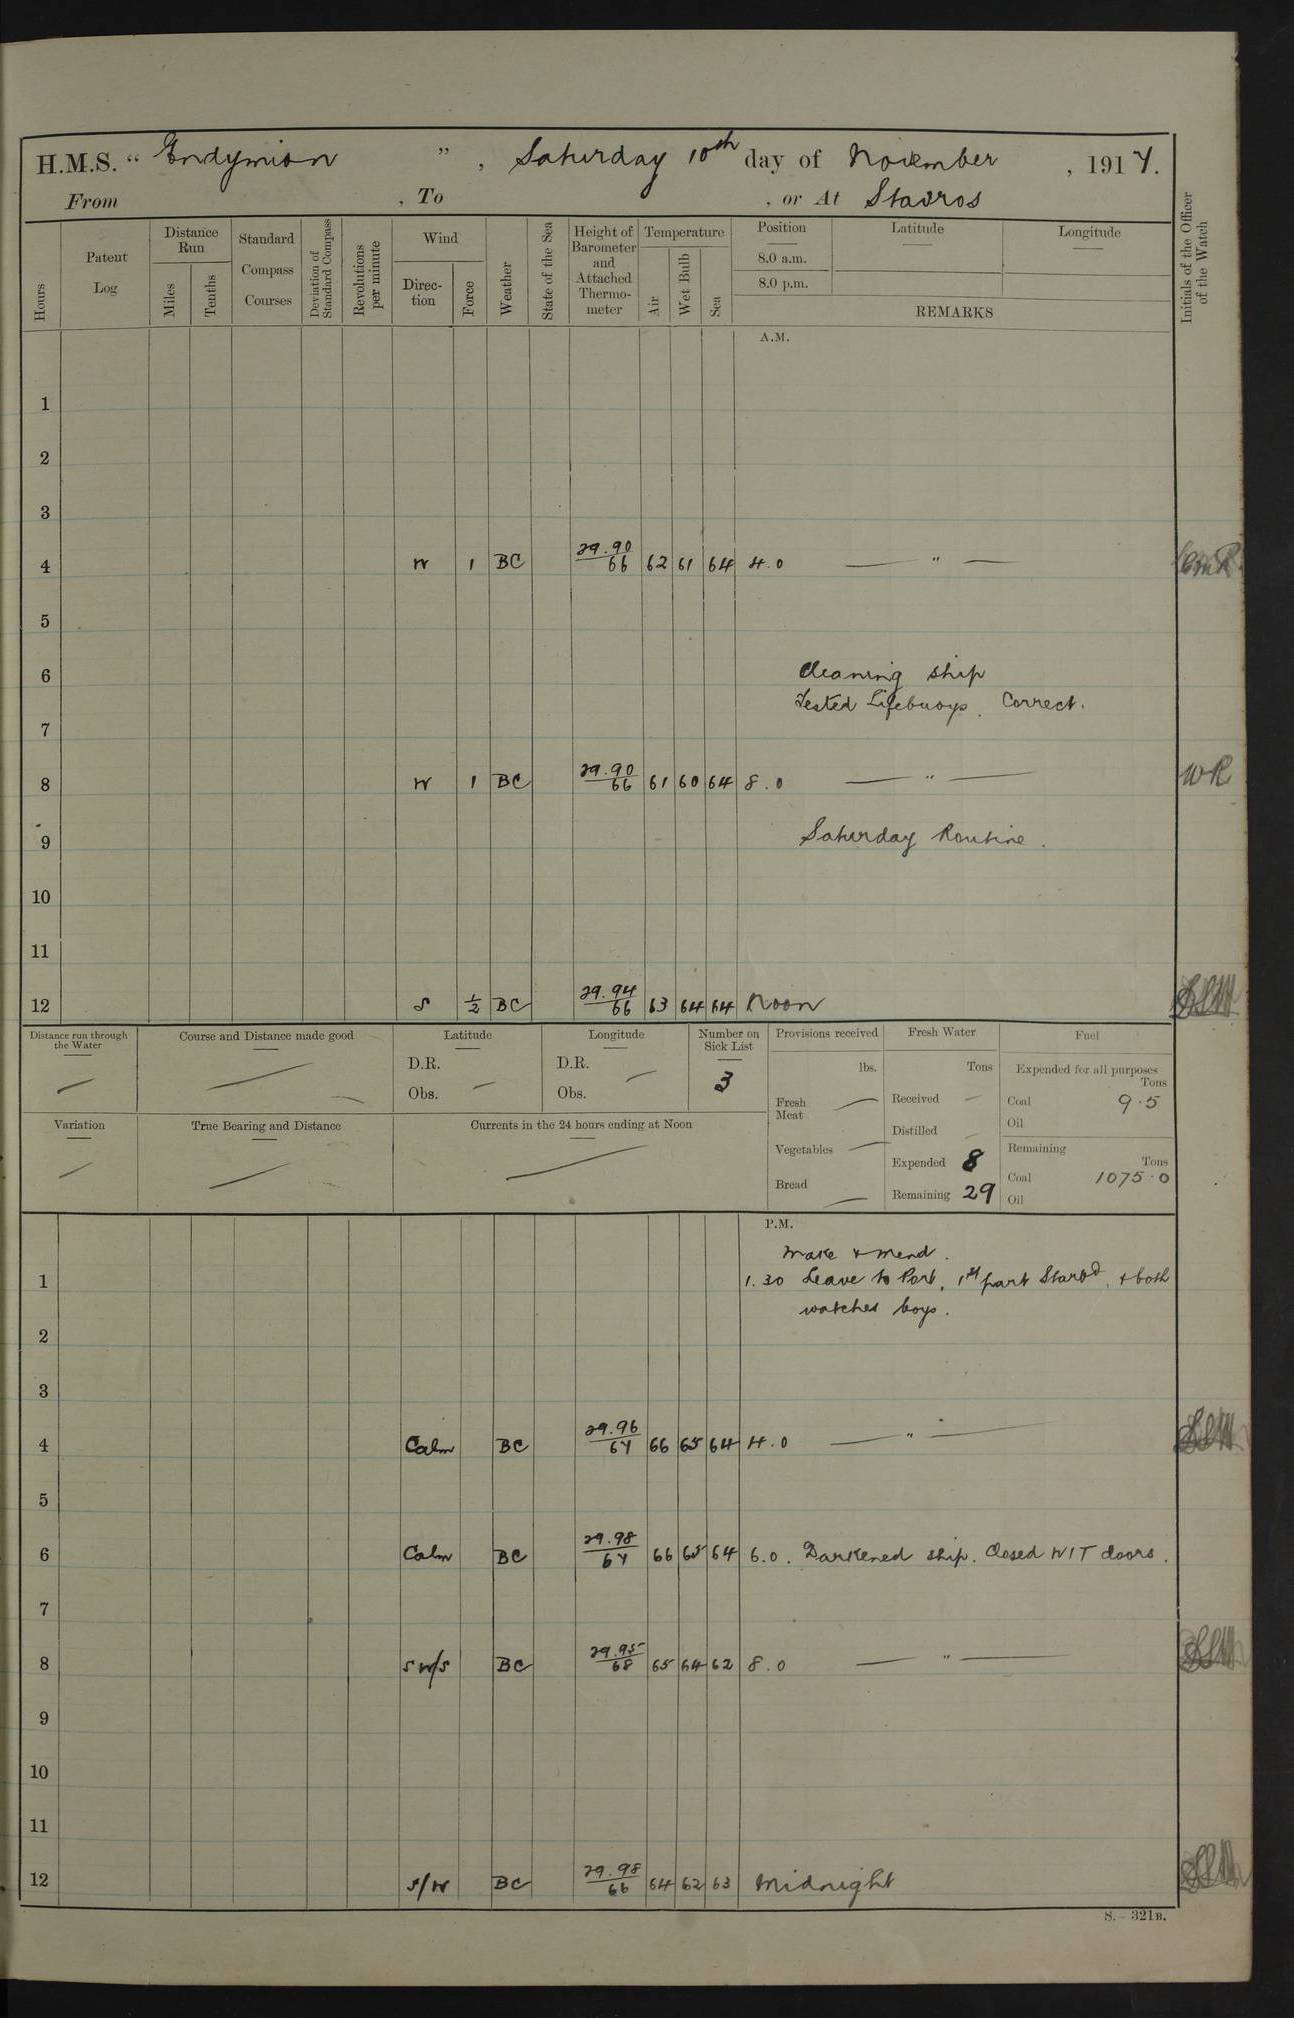 H.M.S. “ Endymion ” , Saturday 10th day of November , 1917.
From , To , or At Stavros
Hours
Patent Log
Distance Run
Miles
Tenths
Standard Compass Courses
Deviation of Standard Compass
Revolutions per minute
Wind
Direction
Force
Weather
State of the Sea
Height of Barometer and Attached Thermometer
Temperature
Air
Wet Bulb
Sea
Position
8.0 a.m.
8.0 p.m.
Latitude
Longitude
REMARKS
Initials of the Officer of the Watch
A.M.
1
2
3
4 W 1 BC 29.90/66 62 61 64 4.0 — " —
5
6 Cleaning ship
Tested Lifebuoys. Correct.
7
8 W 1 BC 29.90/66 61 60 64 8.0 — " — WR
9 Saturday Routine.
10
11
12 S 1/2 BC 29.94/66 63 64 64 Noon
Distance run through the Water
—
Course and Distance made good
—
Latitude
D.R.
Obs. —
Longitude
D.R. —
Obs.
Number on Sick List
3
Provisions received
lbs.
Fresh Meat —
Vegetables —
Bread —
Fresh Water
Tons
Received —
Distilled —
Expended 8
Remaining 29
Fuel
Expended for all purposes
Tons
Coal 9.5
Oil
Remaining
Tons
Coal 1075.0
Oil
Variation
—
True Bearing and Distance
—
Currents in the 24 hours ending at Noon
—
P.M.
Make & mend.
1 1.30 Leave to Port, 1st part Starbd, & both
watches boys.
2
3
4 Calm BC 29.96/67 66 65 64 4.0 — " —
5
6 Calm BC 29.98/67 66 65 64 6.0. Darkened ship. Closed W/T doors.
7
8 SW/S BC 29.95/68 65 64 62 8.0 — " —
9
10
11
12 S/W BC 29.98/66 64 62 63 Midnight
S.—321B.